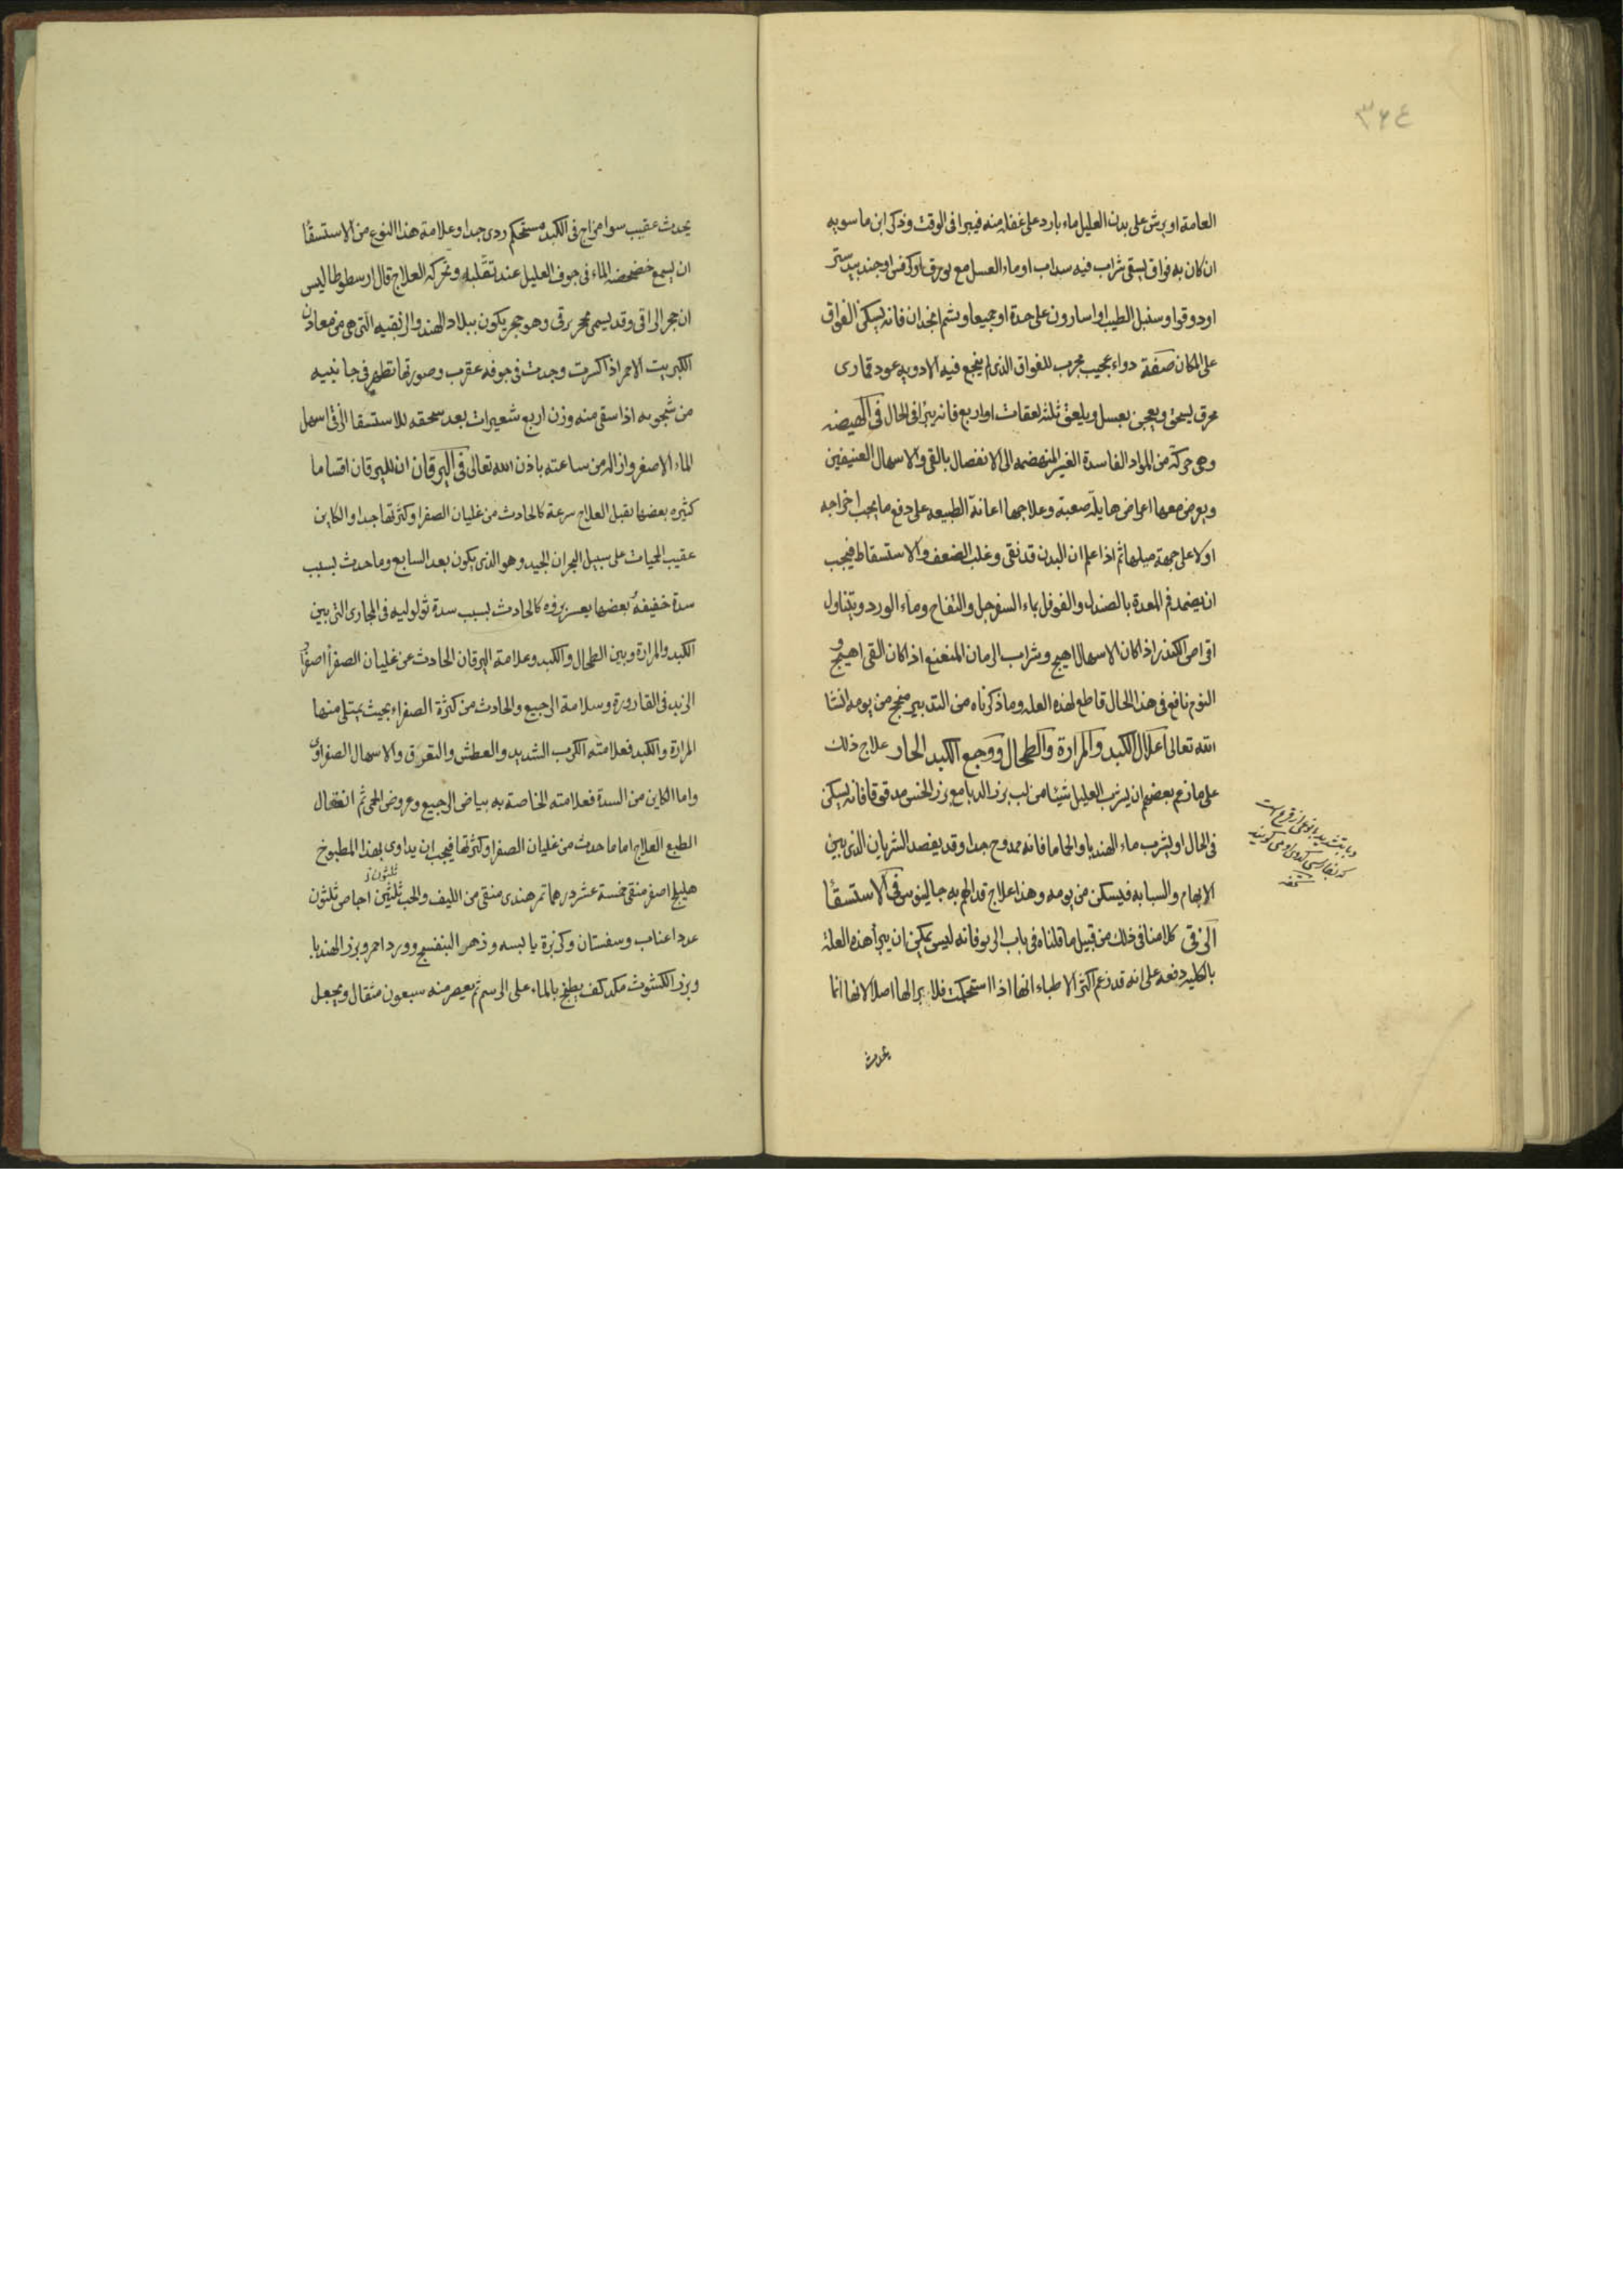 ٣٦٤
العامة او يرش على بدن العليل ماء بارد على غفلة منه فيبرا فى الوقت وذكر ابن ماسويه
ان كان به فواق يسقى شراب فيه سداب او ماء العسل مع بورق او كرفس او جندبيدستر
او دوقوا وسنبل الطيب او اسارون على حدة او جميعا ويشم انجدان فانه يسكن الفواق
على المكان صفة دواء عجيب مجرب للفواق الذى لم ينجع فيه الادويه عود قمارى
محرق يسحق ويعجن بعسل ويلعق ثلثه لعقات او اربع فانه يبرا فى الحال فى الهيضه
وهى حركة من المواد الفاسدة الغير المنهضمه الى الانفصال بالقى والاسهال العنيفين
ويعرض معها اعراض هايلة صعبة وعلاجها اعانة الطبيعه على دفع ما يجب اخراجه
اولا على جهة ميلها ثم اذا علم ان البدن قد نقى وغلب الضعف والاستسقاط فيجب
ان يضمد فم المعدة بالصندل والفوفل بماء السفرجل والتفاح وماء الورد ويتناول
اقراص الكندر اذا كان الاسهال اهيج وشراب الرمان المنعنع اذا كان القى اهيج و
النوم نافع فى هذا الحال قاطع لهذه العله وما ذكرناه من التدبير منجح من يومه انشا
الله تعالى اعلال الكبد والمرارة والطحال ووجع الكبد الحار علاج ذلك
على ما زعم بعضهم ان يشرب العليل شيئا من لب بزر الدبا مع بزر الخس مدقوقا فانه يسكن
فى الحال او يشرب ماء الهندبا والحاما فانه ممدوح جدا وقد يفصد الشريان الذى بين
الابهام والسبابه فيسكن من يومه وهذا علاج قد الهم به جالينوس فى الاستسقا
الزقى كلامنا فى ذلك من قبيل ما قلناه فى باب الربو فانه ليس يمكن ان يبرأ هذه العلة
بالكليه دفعه على انه قد زعم اكثر الاطباء انها اذا استحكمت فلا برا لها اصلا لانها انما
يحدث
يحدث عقيب سوا مزاج فى الكبد مستحكم ردى جدا وعلامة هذا النوع من الاستسقا
ان يسمع خضخضه الماء فى جوف العليل عند تقلبه وتحركه العلاج قال ارسطوطاليس
ان حجر الراقى وقد يسمى حجر برقى وهو حجر يكون ببلاد الهند والزنقيه التى هى من معادن
الكبريت الاحمر اذا كسرت وجدت فى جوفه عقرب وصورتها تظهر فى جانبيه
من شجوبه اذا سقى منه وزن اربع شعيرات بعد سحقه للاستسقا الزقى اسهل
الماء الاصفر وازاله من ساعته باذن الله تعالى فى اليرقان ان لليرقان اقساما
كثيره بعضها يقبل العلاج سرعة كالحادث من غليان الصفرا وكثرتها جدا والكاين
عقيب الحميات على سبيل البحران الجيد وهو الذى يكون بعد السابع وما حدث بسبب
سدة خفيفة بعضها يعسر بروه كالحادث بسبب سدة ثولوليه فى المجارى التى بين
الكبد والمرارة وبين الطحال والكبد وعلامة اليرقان الحادث عن غليان الصفرأ اصفرار
الزبد فى القارورة وسلامة الرجيع والحادث من كثرة الصفراء بحيث يمتلى منها
المرارة والكبد فعلامته الكرب الشديد والعطش والتعرق والاسهال الصفراوى
واما الكاين من السدة فعلامته الخاصة به بياض الرجيع وعروض الحمى ثم انعقال
الطبع العلاج اما ما حدث من غليان الصفرا وكثرتها فيجب ان يداوى بهذا المطبوخ
هليلج اصفر منقى خمسة عشر درهما تمر هندى منقى من الليف والحب ثلثين اجاص ثلثون
عددا عناب وسفستان وكزبرة يابسه وزهر البنفسج وورد احمر وبزر الهندبا
وبزر الكشوث مكد كف يطبخ بالماء على الرسم ثم يعصر منه سبعون مثقال ويجعل